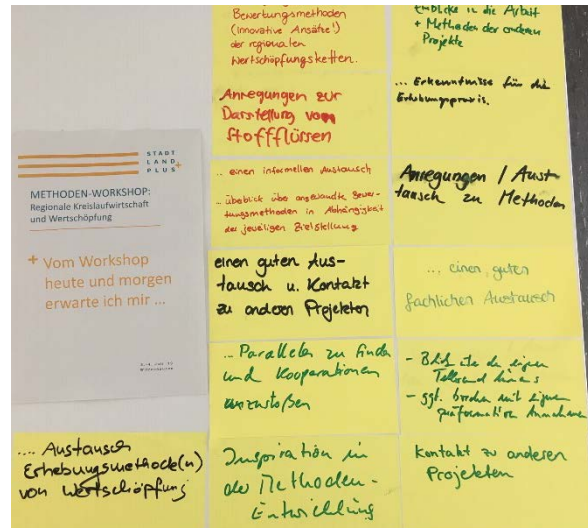 STADT
LAND
PLUS+
METHODEN-WORKSHOP:
Regionale Kreislaufwirtschaft
und Wertschöpfung
+ Vom Workshop
heute und morgen
erwarte ich mir ...
.... Austausch
Erhebungsmethode(n)
von Wertschöpfung
Bewertungsmethoden
(Innovative Ansätze!)
der regionalen
Wertschöpfungsketten.
Anregungen zur
Darstellung von
Stoffflüssen
... einen informellen Austausch
... überblick über angewandte Bewer-
tungsmethoden in Abhängigkeit
der jeweiligen Zielstellung
einen guten Aus-
tausch u. Kontakt
zu anderen Projekten
... Parallelen zu finden
und Kooperationen
anzustoßen
Inspiration in
der Methoden-
Entwicklung
Einblicke in die Arbeit
+ Methoden der anderen
Projekte
... Erkenntnisse für die
Erhebungspraxis.
Anregungen / Aust-
tausch zu Methoden
... einen guten
fachlichen Austausch
- Blick über den eigenen
Tellerrand hinaus
- ggf. brechen mit eigenen
Annahmen
Kontakt zu anderen
Projekten